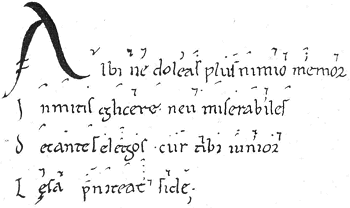 Albi ne doleas plus nimio memor
Inmitis glicere neu miserabiles
Decantes elegos · cur tibi iunior
Lęsa p̄niteat fide;